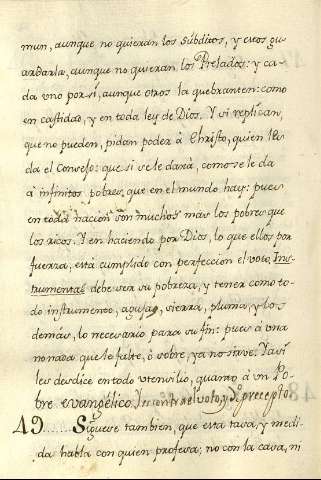 mun, aunque no quieran los Súbditos, y estos gu
ardarla, aunque no quieran los Prelados: y ca
da uno por sí, aunque otros la quebranten: como
en castidad, y en toda ley de Dios. Y si replican,
que no pueden, pidan poder á Christo, quien les
da el Consejo: que si se le dará, como se le da
á infinitos pobres, que en el mundo hay: pues
en toda nacion son muchos mas los pobres que
los ricos. Y en haciendo por Dios, lo que ellos por
fuerza, está cumplido con perfeccion el voto. Ins-
trumental debe ser su pobreza, y tener como to
do instrumento, aguja, sierra, pluma, y los
demas, lo necesario para su fin: pues á una
nonada que le falte, ó sobre, ya no sirve. Y así
les desdice en todo utensilio, quanto á un Po-
bre evangélico. el voto, y precepto.
49. Siguese tambien, que esta tasa, y medi
da habla con quien profesa; no con la casa, ni